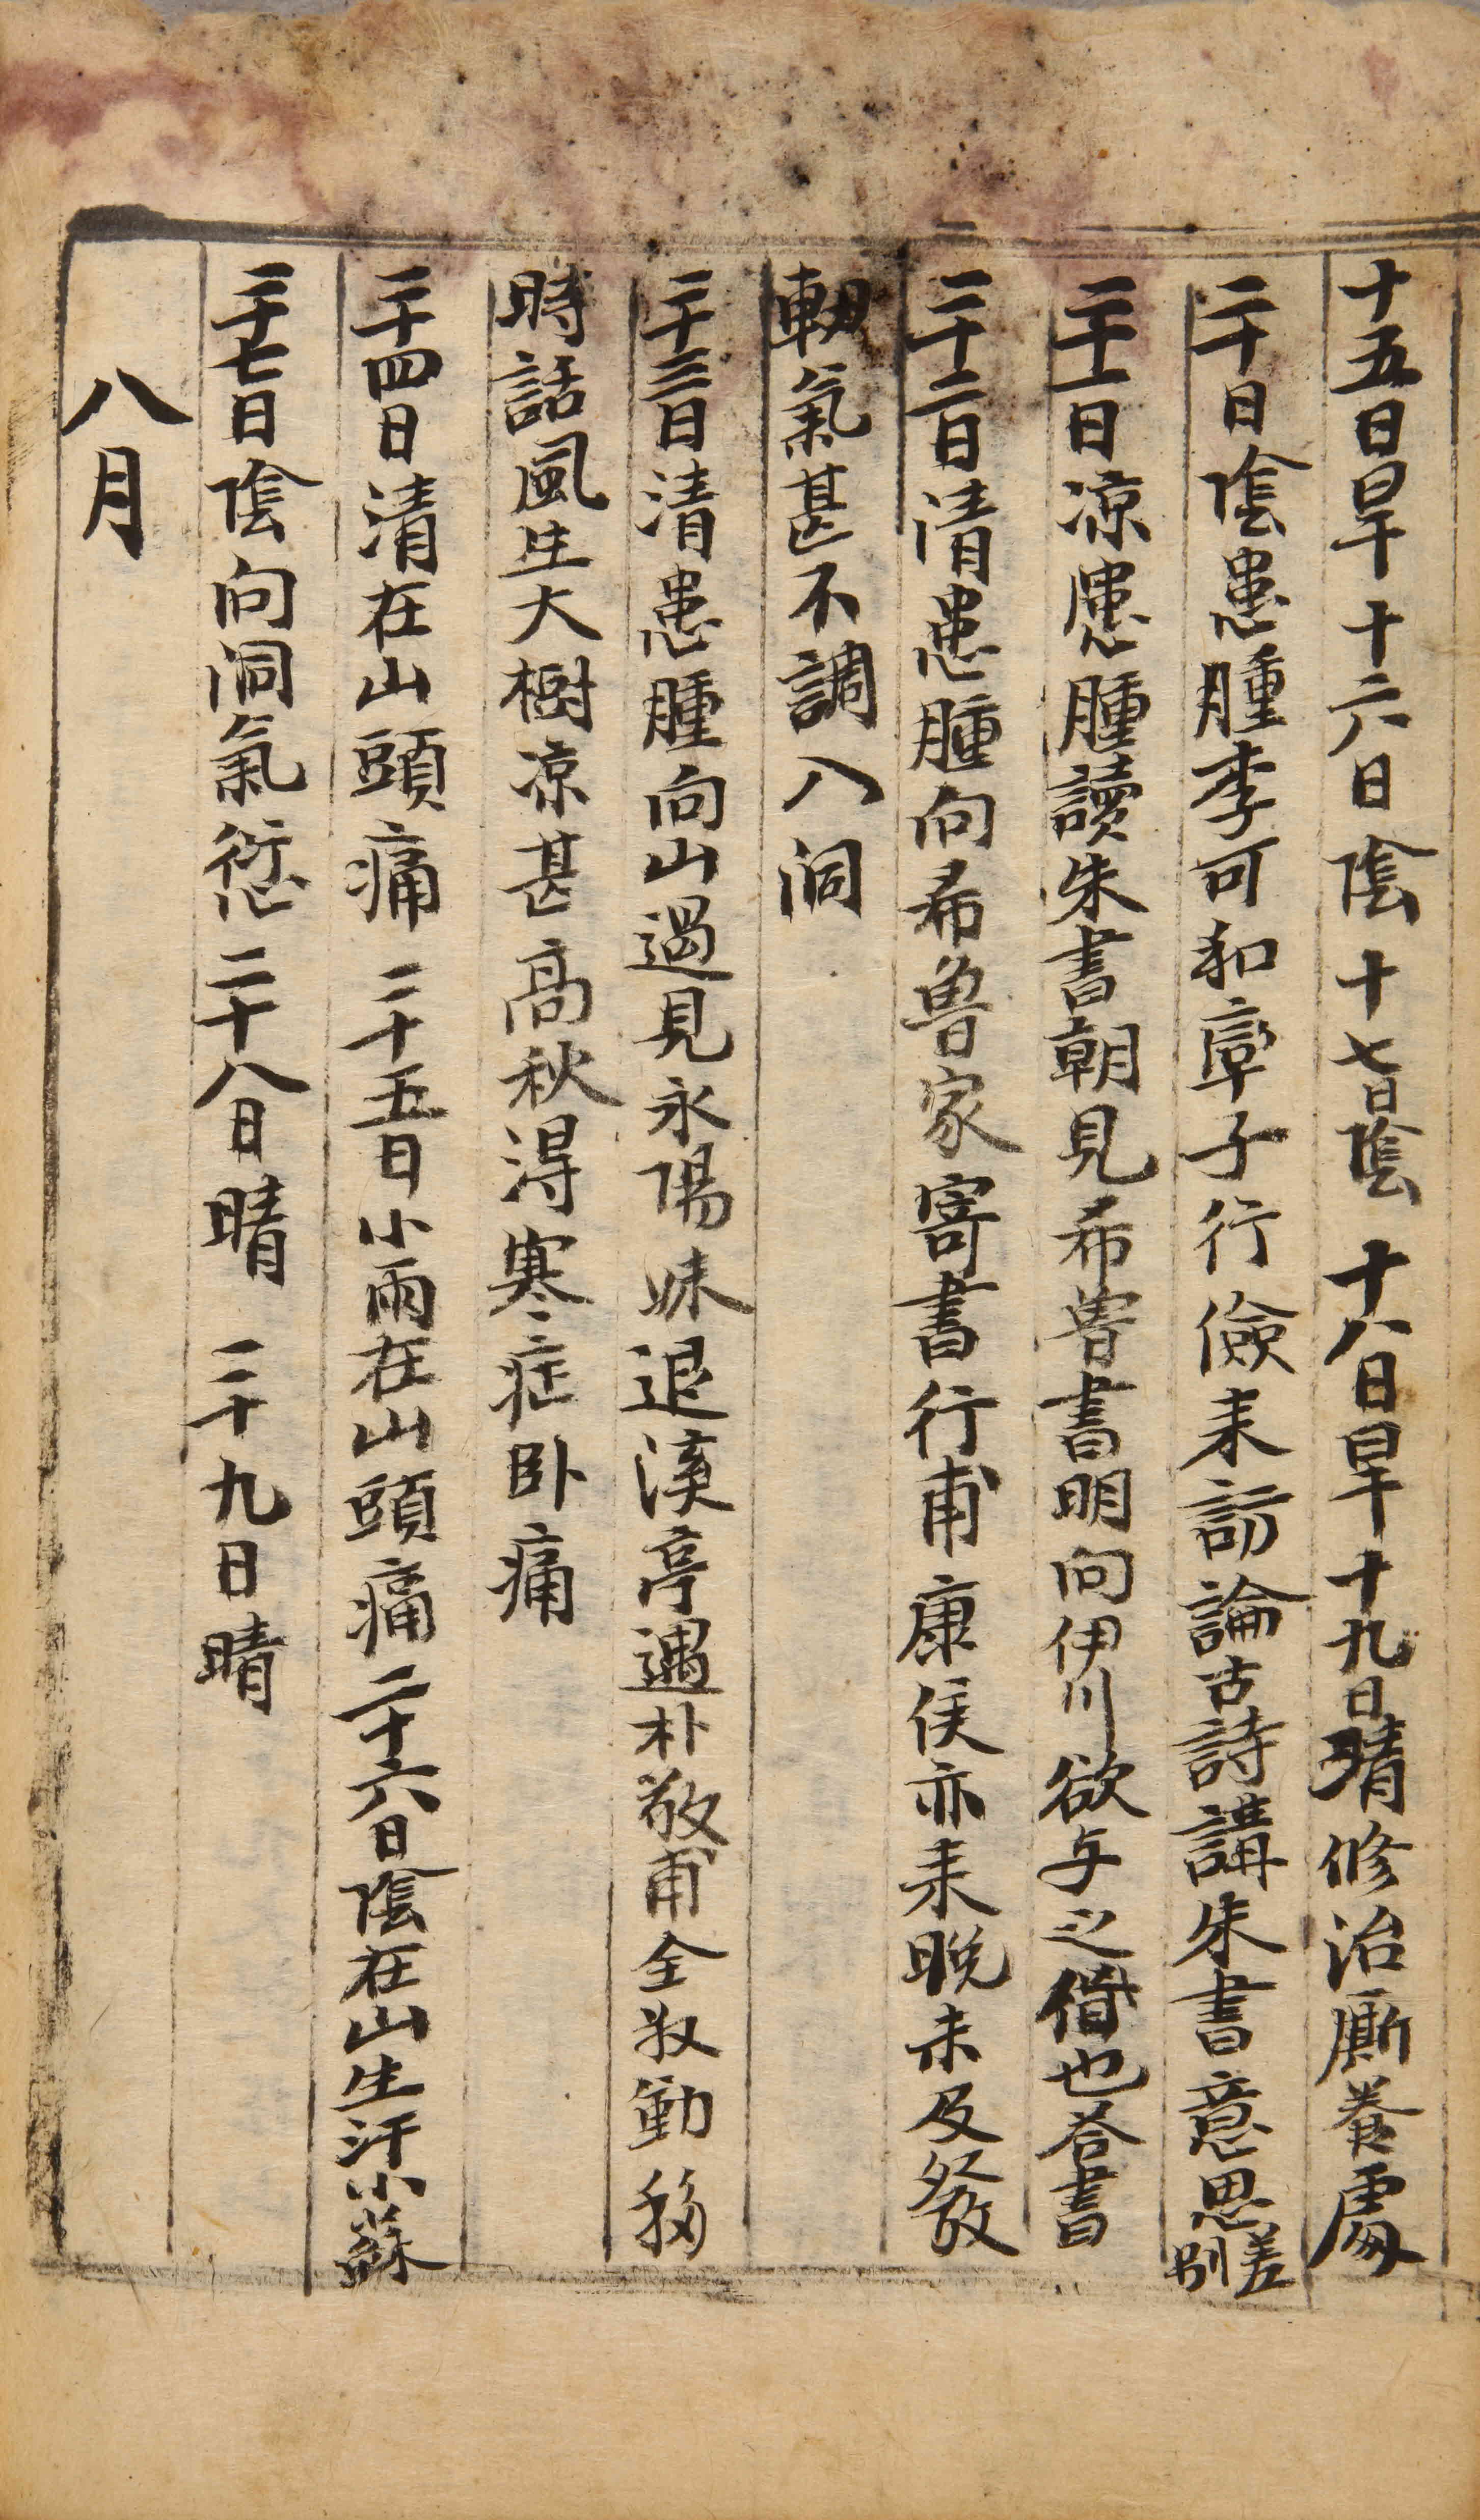 十五日旱 十六日陰 十七日陰 十八日旱 十九日晴修治廝養處
二十日陰患腫李可和章子行儉來訪論古詩講朱書意思差別
二十一日凉患腫讀朱書朝見希魯書明向伊川欲与之偕也答書
二十二日清患腫向希魯家寄書行甫康侯亦來晩未及發
軔氣甚不調入洞
二十三日清患腫向山過見永陽妹退溪亭遇朴敬甫全牧動移
時話風生大樹凉甚高秋得寒症卧痛
二十四日清在山頭痛 二十五日小雨在山頭痛 二十六日陰在山生汗小蘇
二十七日陰向洞氣愆 二十八日晴 二十九日晴
八月